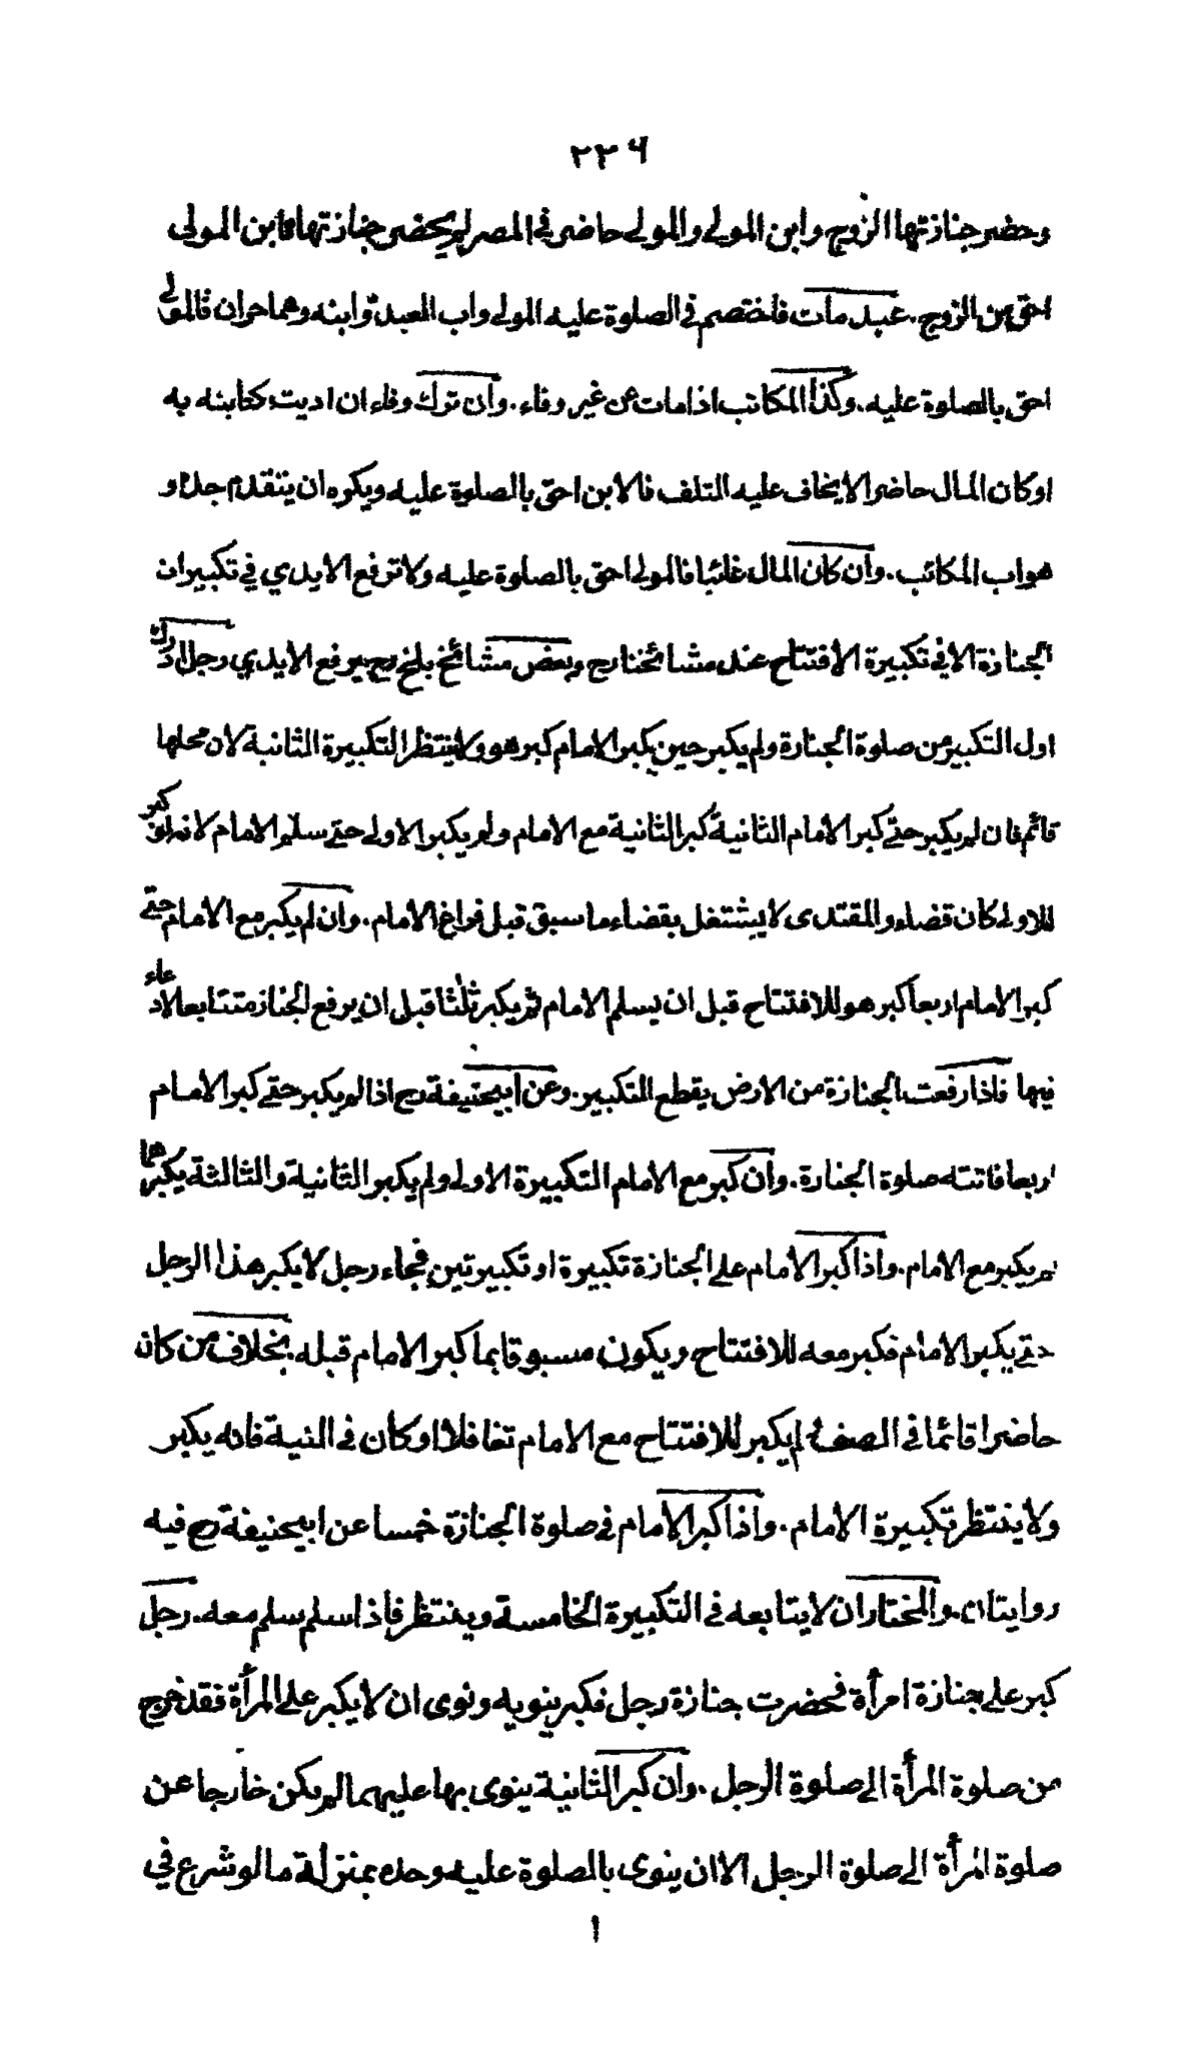 ٢٢٦
وحضر جنازتها الزوج وابن المولى والمولى حاضر في المصر لم يحضر جنازتها فابن المولى
احق من الزوج. عبد مات فاختصم في الصلوة عليه المولى واب العبد وابنه وهما حران فالمولى
احق بالصلوة عليه. وكذا المكاتب اذا مات عن غير وفاء. وان ترك وفاء ان اديت كتابته به
اوكان المال حاضرا لا يخاف عليه التلف فالابن احق بالصلوة عليه ويكره ان يتقدم جده و
هو اب المكاتب. وان كان المال غائبا فالمولى احق بالصلوة عليه ولا ترفع الايدي في تكبيران
الجنازة الا في تكبيرة الافتتاح عند مشائخنا رح وبعض مشائخ بلخ رح يرفع الايدي رجل ادرك
اول التكبير من صلوة الجنازة ولم يكبر حين يكبر الامام كبر هو ولا ينتظر التكبيرة الثانية لان محلها
قائم فان لم يكبر حتى كبر الامام الثانية كبر الثانية مع الامام ولم يكبر الاولى حتى سلم الامام لانه لو كبر
للاولى كان قضاء والمقتدى لا يشتغل بقضاء ما سبق قبل فراغ الامام. وان لم يكبر مع الامام حتى
كبر الامام اربعا كبر هو للافتتاح قبل ان يسلم الامام ثم يكبر ثلثا قبل ان يرفع الجنازة متتابعا لا دعاء
فيها فاذا رفعت الجنازة من الارض يقطع التكبير. وعن ابيحنيفة رح اذا لم يكبر حتى كبر الامام
اربعا فاتته صلوة الجنازة. وان كبر مع الامام التكبيرة الاولى ولم يكبر الثانية والثالثة يكبرهما
ثم يكبر مع الامام. واذا كبر الامام على الجنازة تكبيرة او تكبيرتين فجاء رجل لا يكبر هذا الرجل
حتى يكبر الامام فكبر معه للافتتاح ويكون مسبوقا بما كبر الامام قبله. بخلاف من كان
حاضرا قائما في الصف لم يكبر للافتتاح مع الامام تغافلا او كان في النية فانه يكبر
ولا ينتظر تكبيرة الامام. واذا كبر الامام في صلوة الجنازة خمسا عن ابيحنيفة رح فيه
روايتان. والمختار ان لا يتابعه في التكبيرة الخامسة وينتظر فاذا سلم سلم معه. رجل
كبر على جنازة امرأة فحضرت جنازة رجل فكبر ينويه ونوى ان لا يكبر على المرأة فقد خرج
من صلوة المرأة الى صلوة الرجل. وان كبر الثانية ينوى بها عليهما لم يكن خارجا عن
صلوة المرأة الى صلوة الرجل الا ان ينوى بالصلوة عليه وحده بمنزلة ما لو شرع في
ا